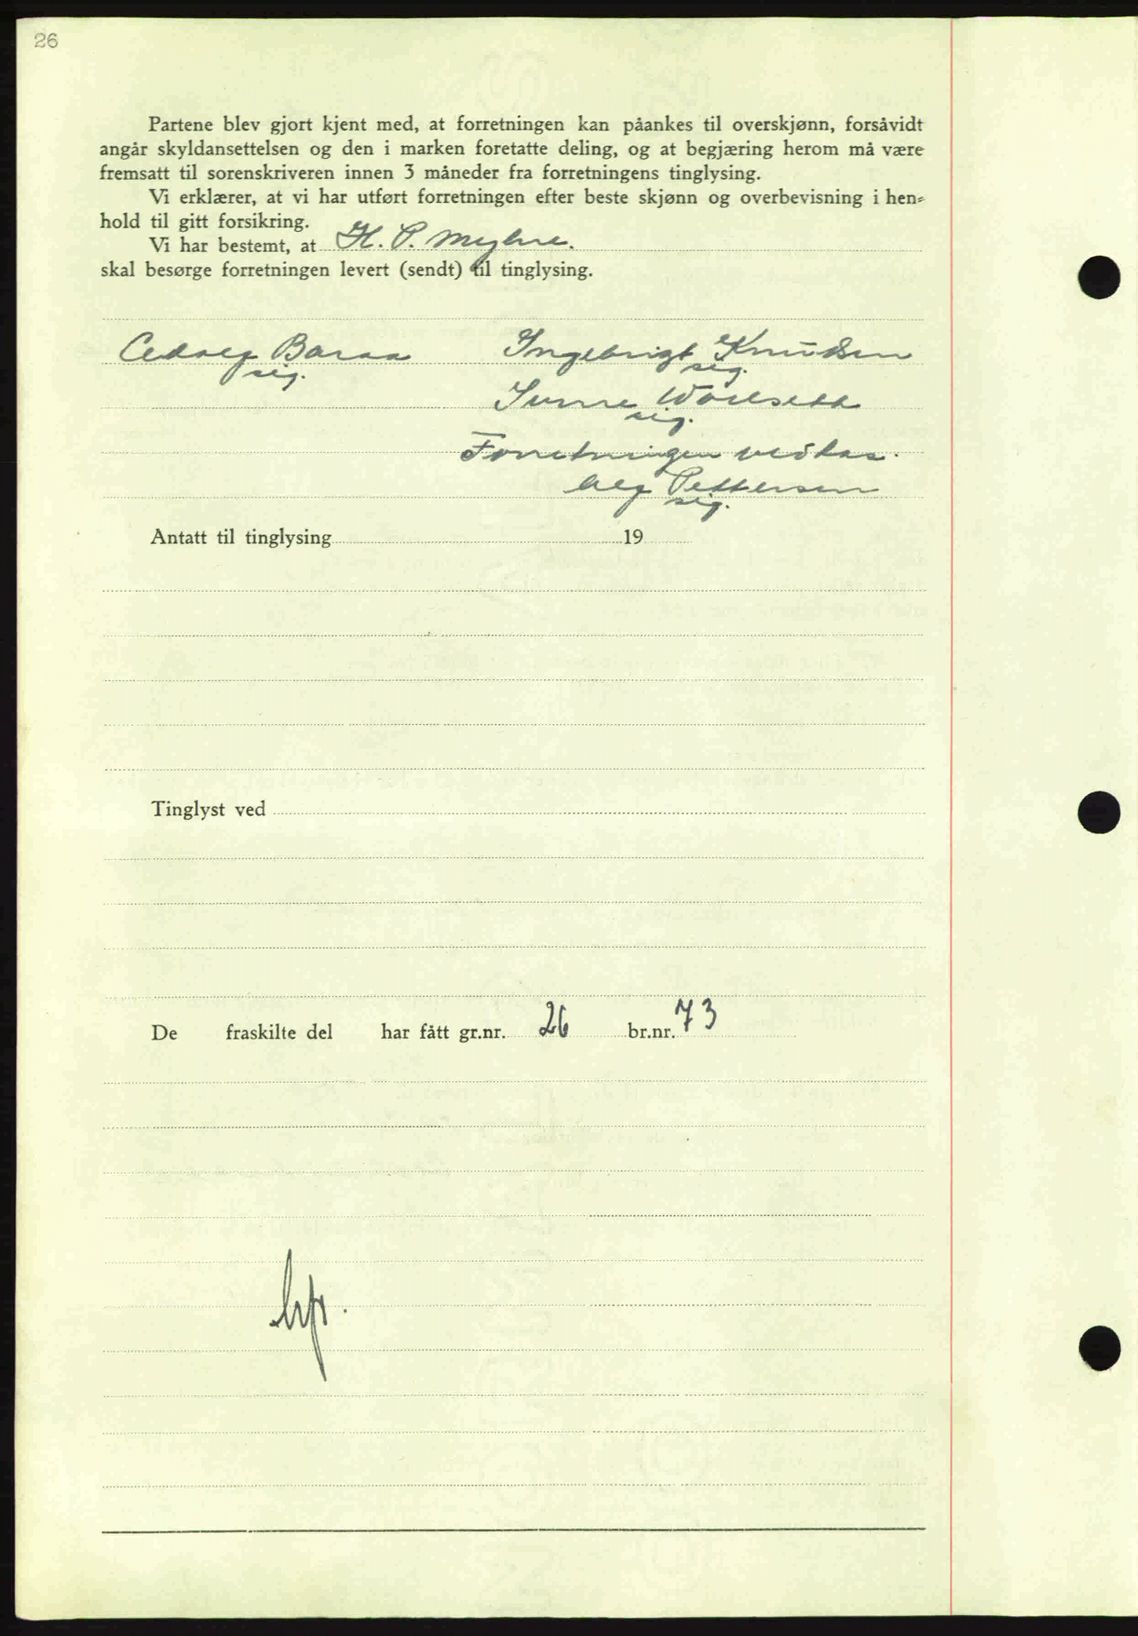 26
Partene blev gjort kjent med, at forretningen kan påankes til overskjønn, forsåvidt
angår skyldansettelsen og den i marken foretatte deling, og at begjæring herom må være
fremsatt til sorenskriveren innen 3 måneder fra forretningens tinglysing.
Vi erklærer, at vi har utført forretningen efter beste skjønn og overbevisning i hen-
hold til gitt forsikring.
Vi har bestemt, at H. P. Myhre.
skal besørge forretningen levert (sendt) til tinglysing.
Ingebrigt Knudsen
sig. sig.
sig.
Forretningen vedtas.
Pettersen
sig.
Antatt til tinglysing 19
Tinglyst ved
De fraskilte del har fått gr.nr. 26 br.nr. 73